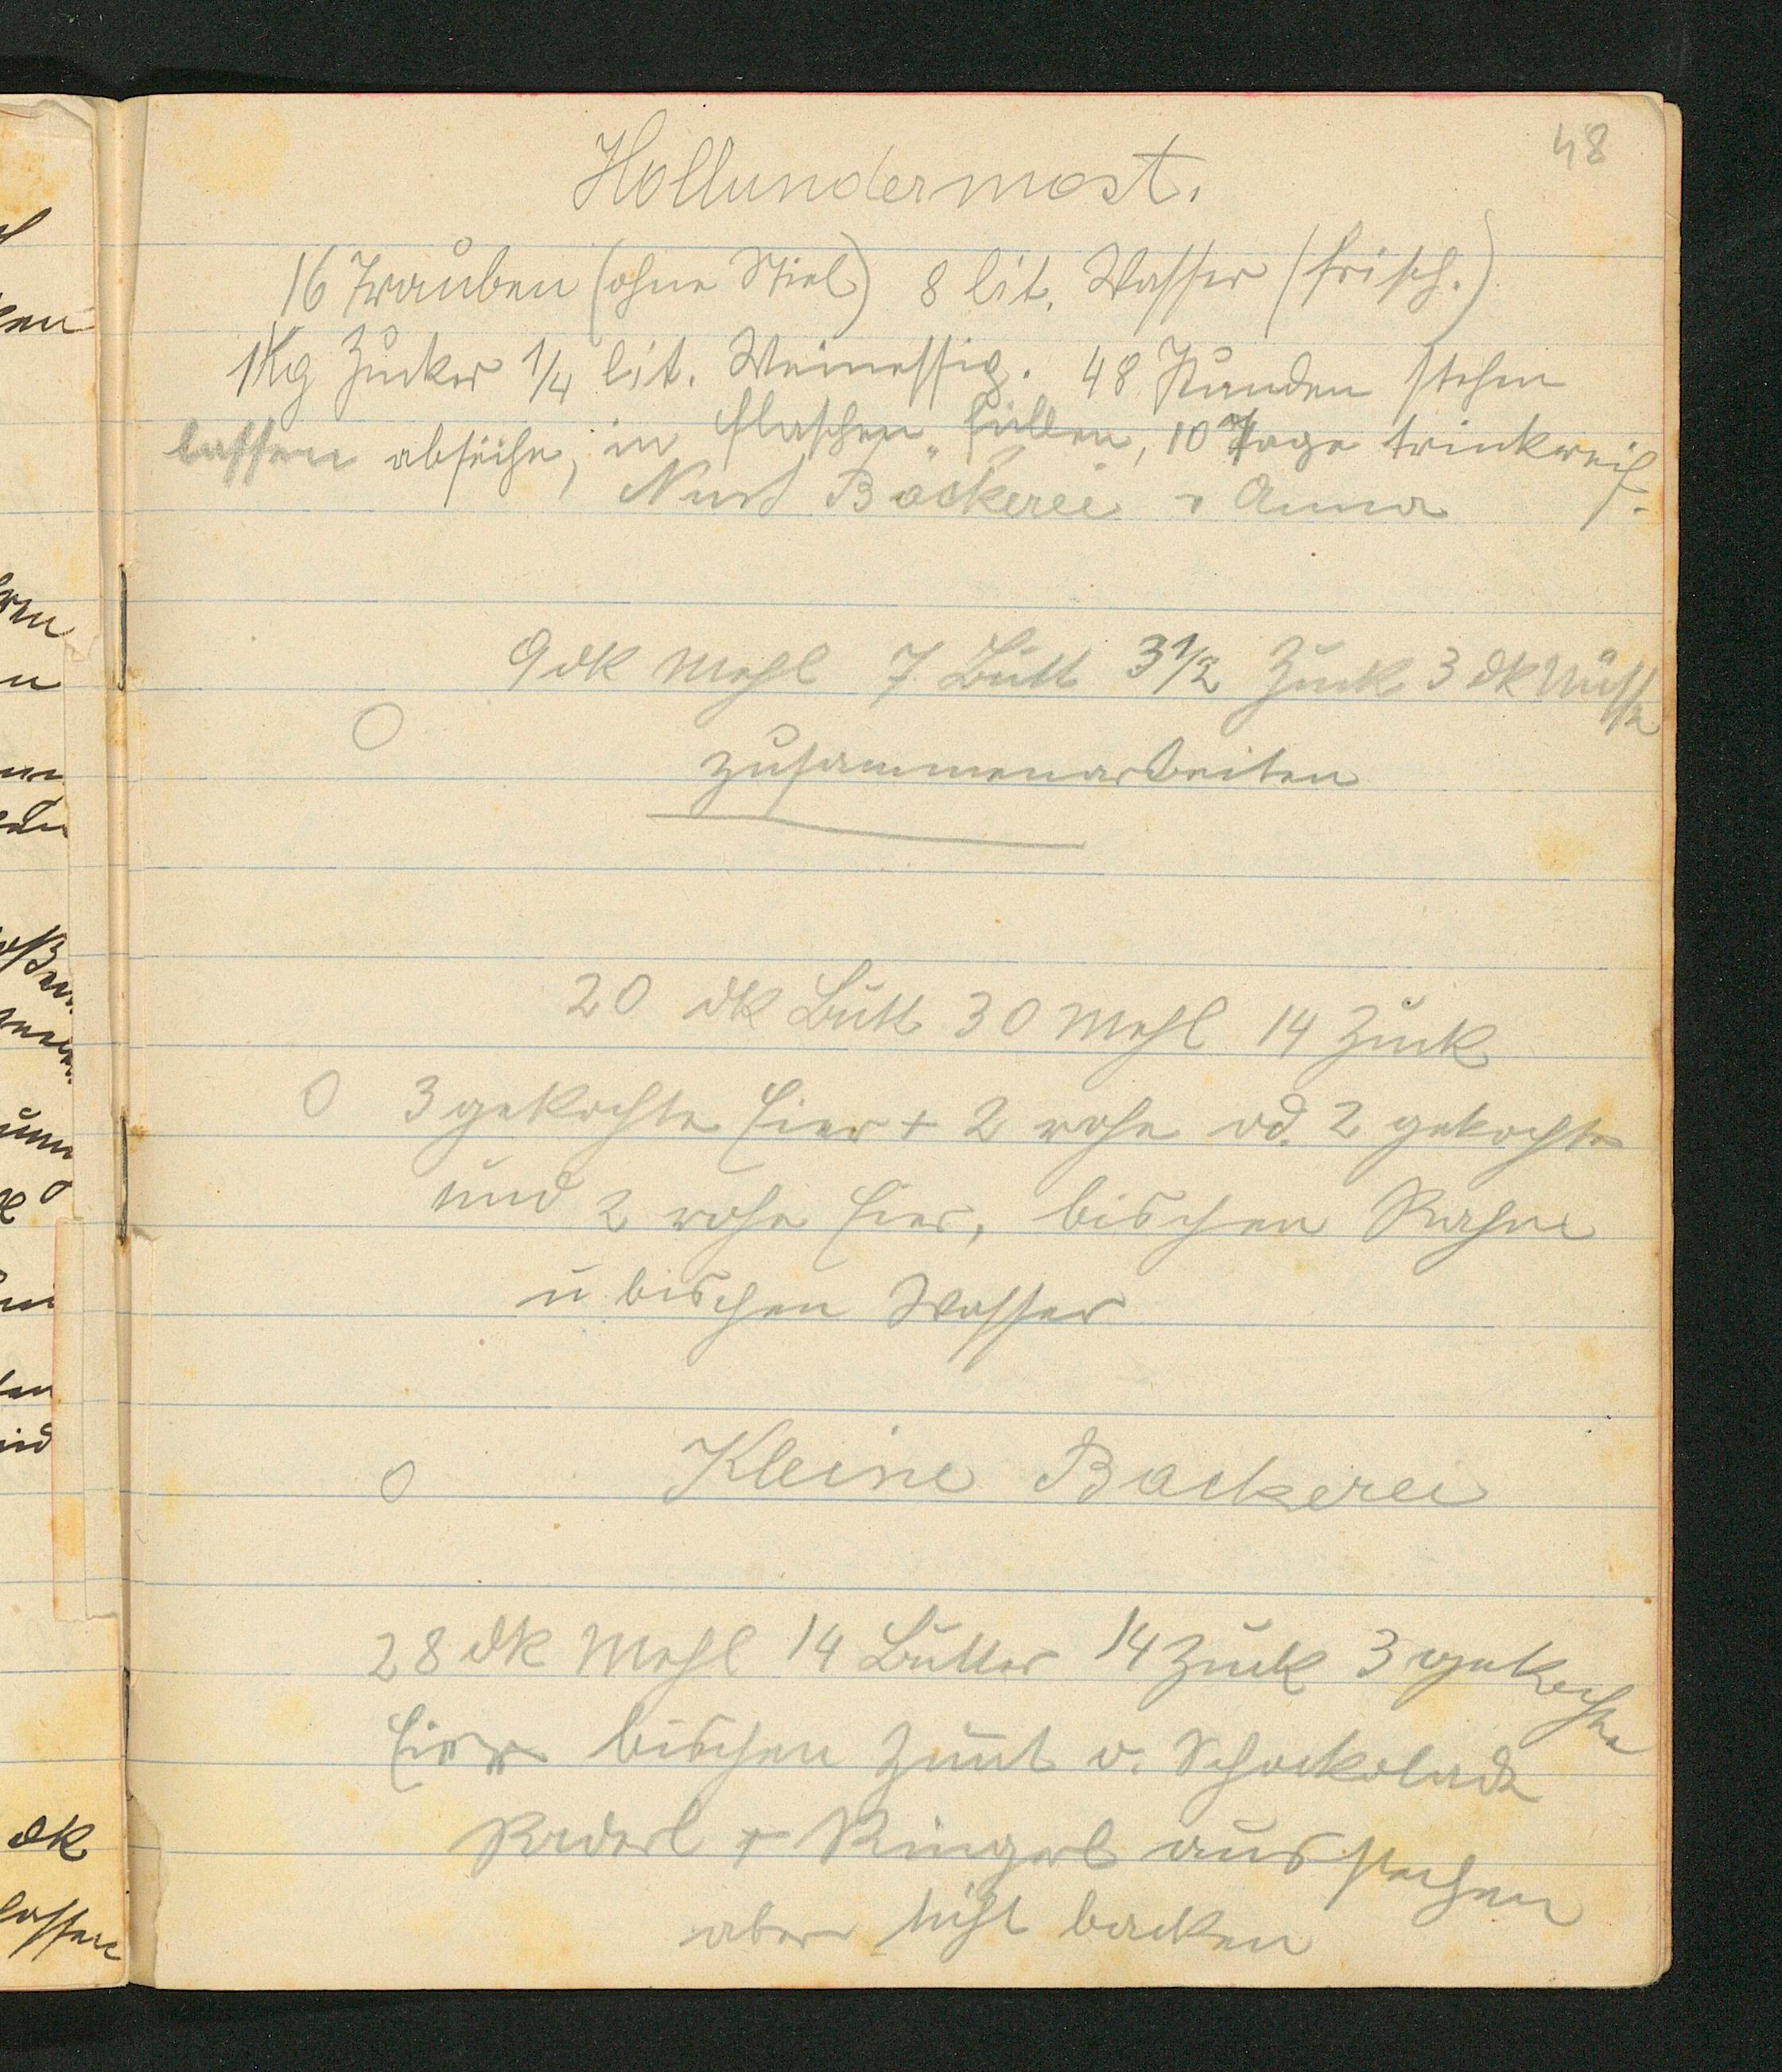 48
Hollundermost.
16 Trauben (ohne Stiel) 8 lit. Wasser (frisch.)
1Kg Zucker 1/4 lit. Weinessig. 48 Stunden stehen
lassen abseihe, in Flaschen füllen, 10 Tage trinkreif.
Nuss Bäckerei v Anna
9 dk Mehl 7 Butt 3 1/2 Zuck 3 dk Nüsse
zusammenarbeiten
20 dk Butt 30 Mehl 14 Zuck
3 gekochte Eier + 2 rohe od. 2 gekochte
und 2 rohe Eier, bischen Rahm
u bischen Wasser
Kleine Backerei
28 dk Mehl 14 Butter 14 Zuck 3 gekochte
Eier bischen Zimt v. Schockolade
Raderl + Ringerl ausstechen
aber licht backen
dk
lassen